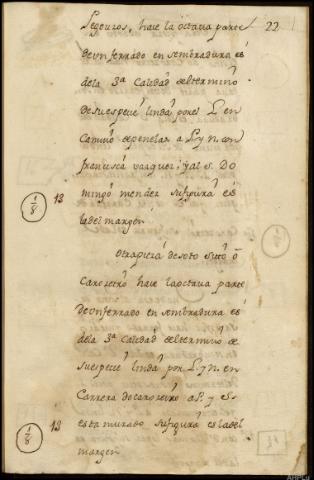 Segeuros, haze la octava parte 22
de un ferrado en sembradura es
de la 3ª Calidad del termino
de su especie linda por el L en
Camino de penelas a P. y n. con
francisca vazquez, y al s. Do
mingo mendez su figura es
la del margen
1/8 13
Otra pieza de soto sito o
Caroreiro haze la octava parte
de un ferrado en sembradura es
de la 3ª Calidad del termino de
su especie linda por L. y n. en
Carrera de caroreiro a P. y s.
esta murado su figura es la del
margen
1/8 13